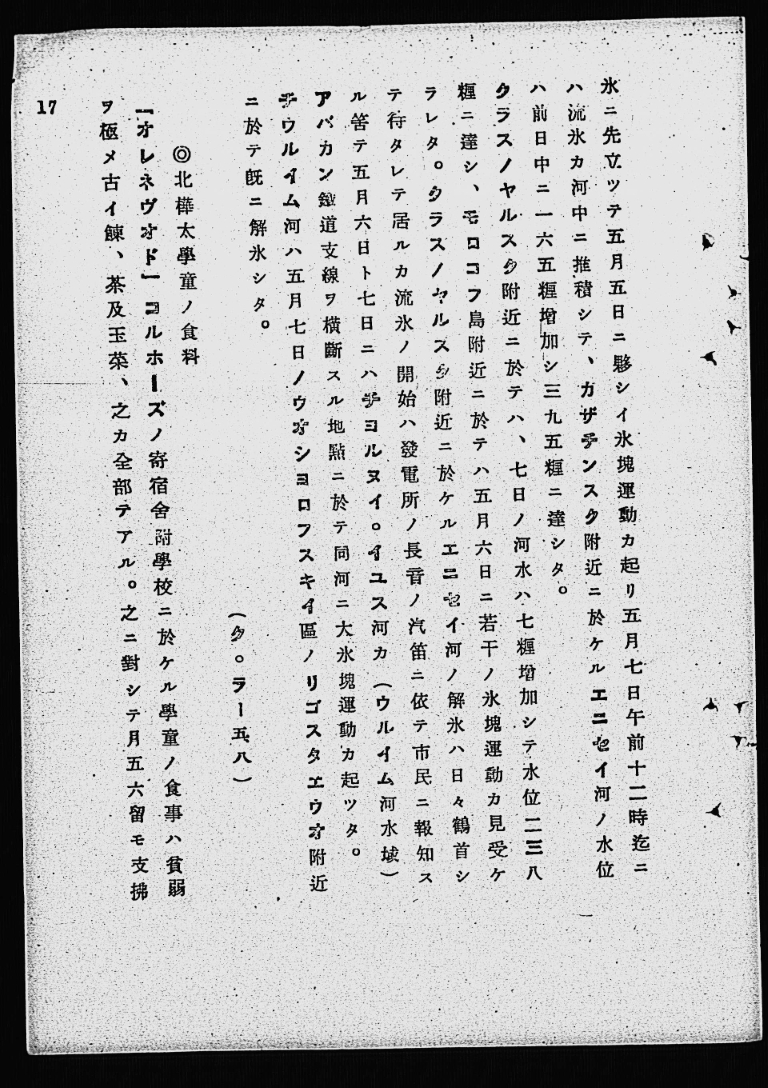 氷ニ先立ツテ五月五日ニ夥シイ氷塊運動カ起リ五月七日午前十二時迄ニ
ハ流氷カ河中ニ推積シテ、カザチンスク附近ニ於ケルエニセイ河ノ水位
ハ前日中ニ一六五糎增加シ三九五糎ニ達シタ。
クラスノヤルスク附近ニ於テハ、七日ノ河水ハ七糎增加シテ水位二三八
糎ニ達シ、モロコフ島附近ニ於テハ五月六日ニ若干ノ氷塊運動カ見受ケ
ラレタ。クラスノヤルスク附近ニ於ケルエニセイ河ノ解氷ハ日々鶴首シ
テ待タレテ居ルカ流氷ノ開始ハ發電所ノ長音ノ汽笛ニ依テ市民ニ報知ス
ル筈テ五月六日ト七日ニハチヨルヌイ。イユス河カ(ウルイム河水域)
アバカン鐵道支線ヲ橫斷スル地點ニ於テ同河ニ大氷塊運動カ起ツタ。
チウルイム河ハ五月七日ノウオシヨロフスキイ區ノリゴスタエウオ附近
ニ於テ旣ニ解氷シタ。
(ク。ラー五、八)
◎北樺太學童ノ食料
「オレネヴオド」コルホーズノ寄宿舍附學校ニ於ケル學童ノ食事ハ貧弱
ヲ極メ古イ鰊、茶及玉菜、之カ全部テアル。之ニ對シテ月五六留モ支拂
17